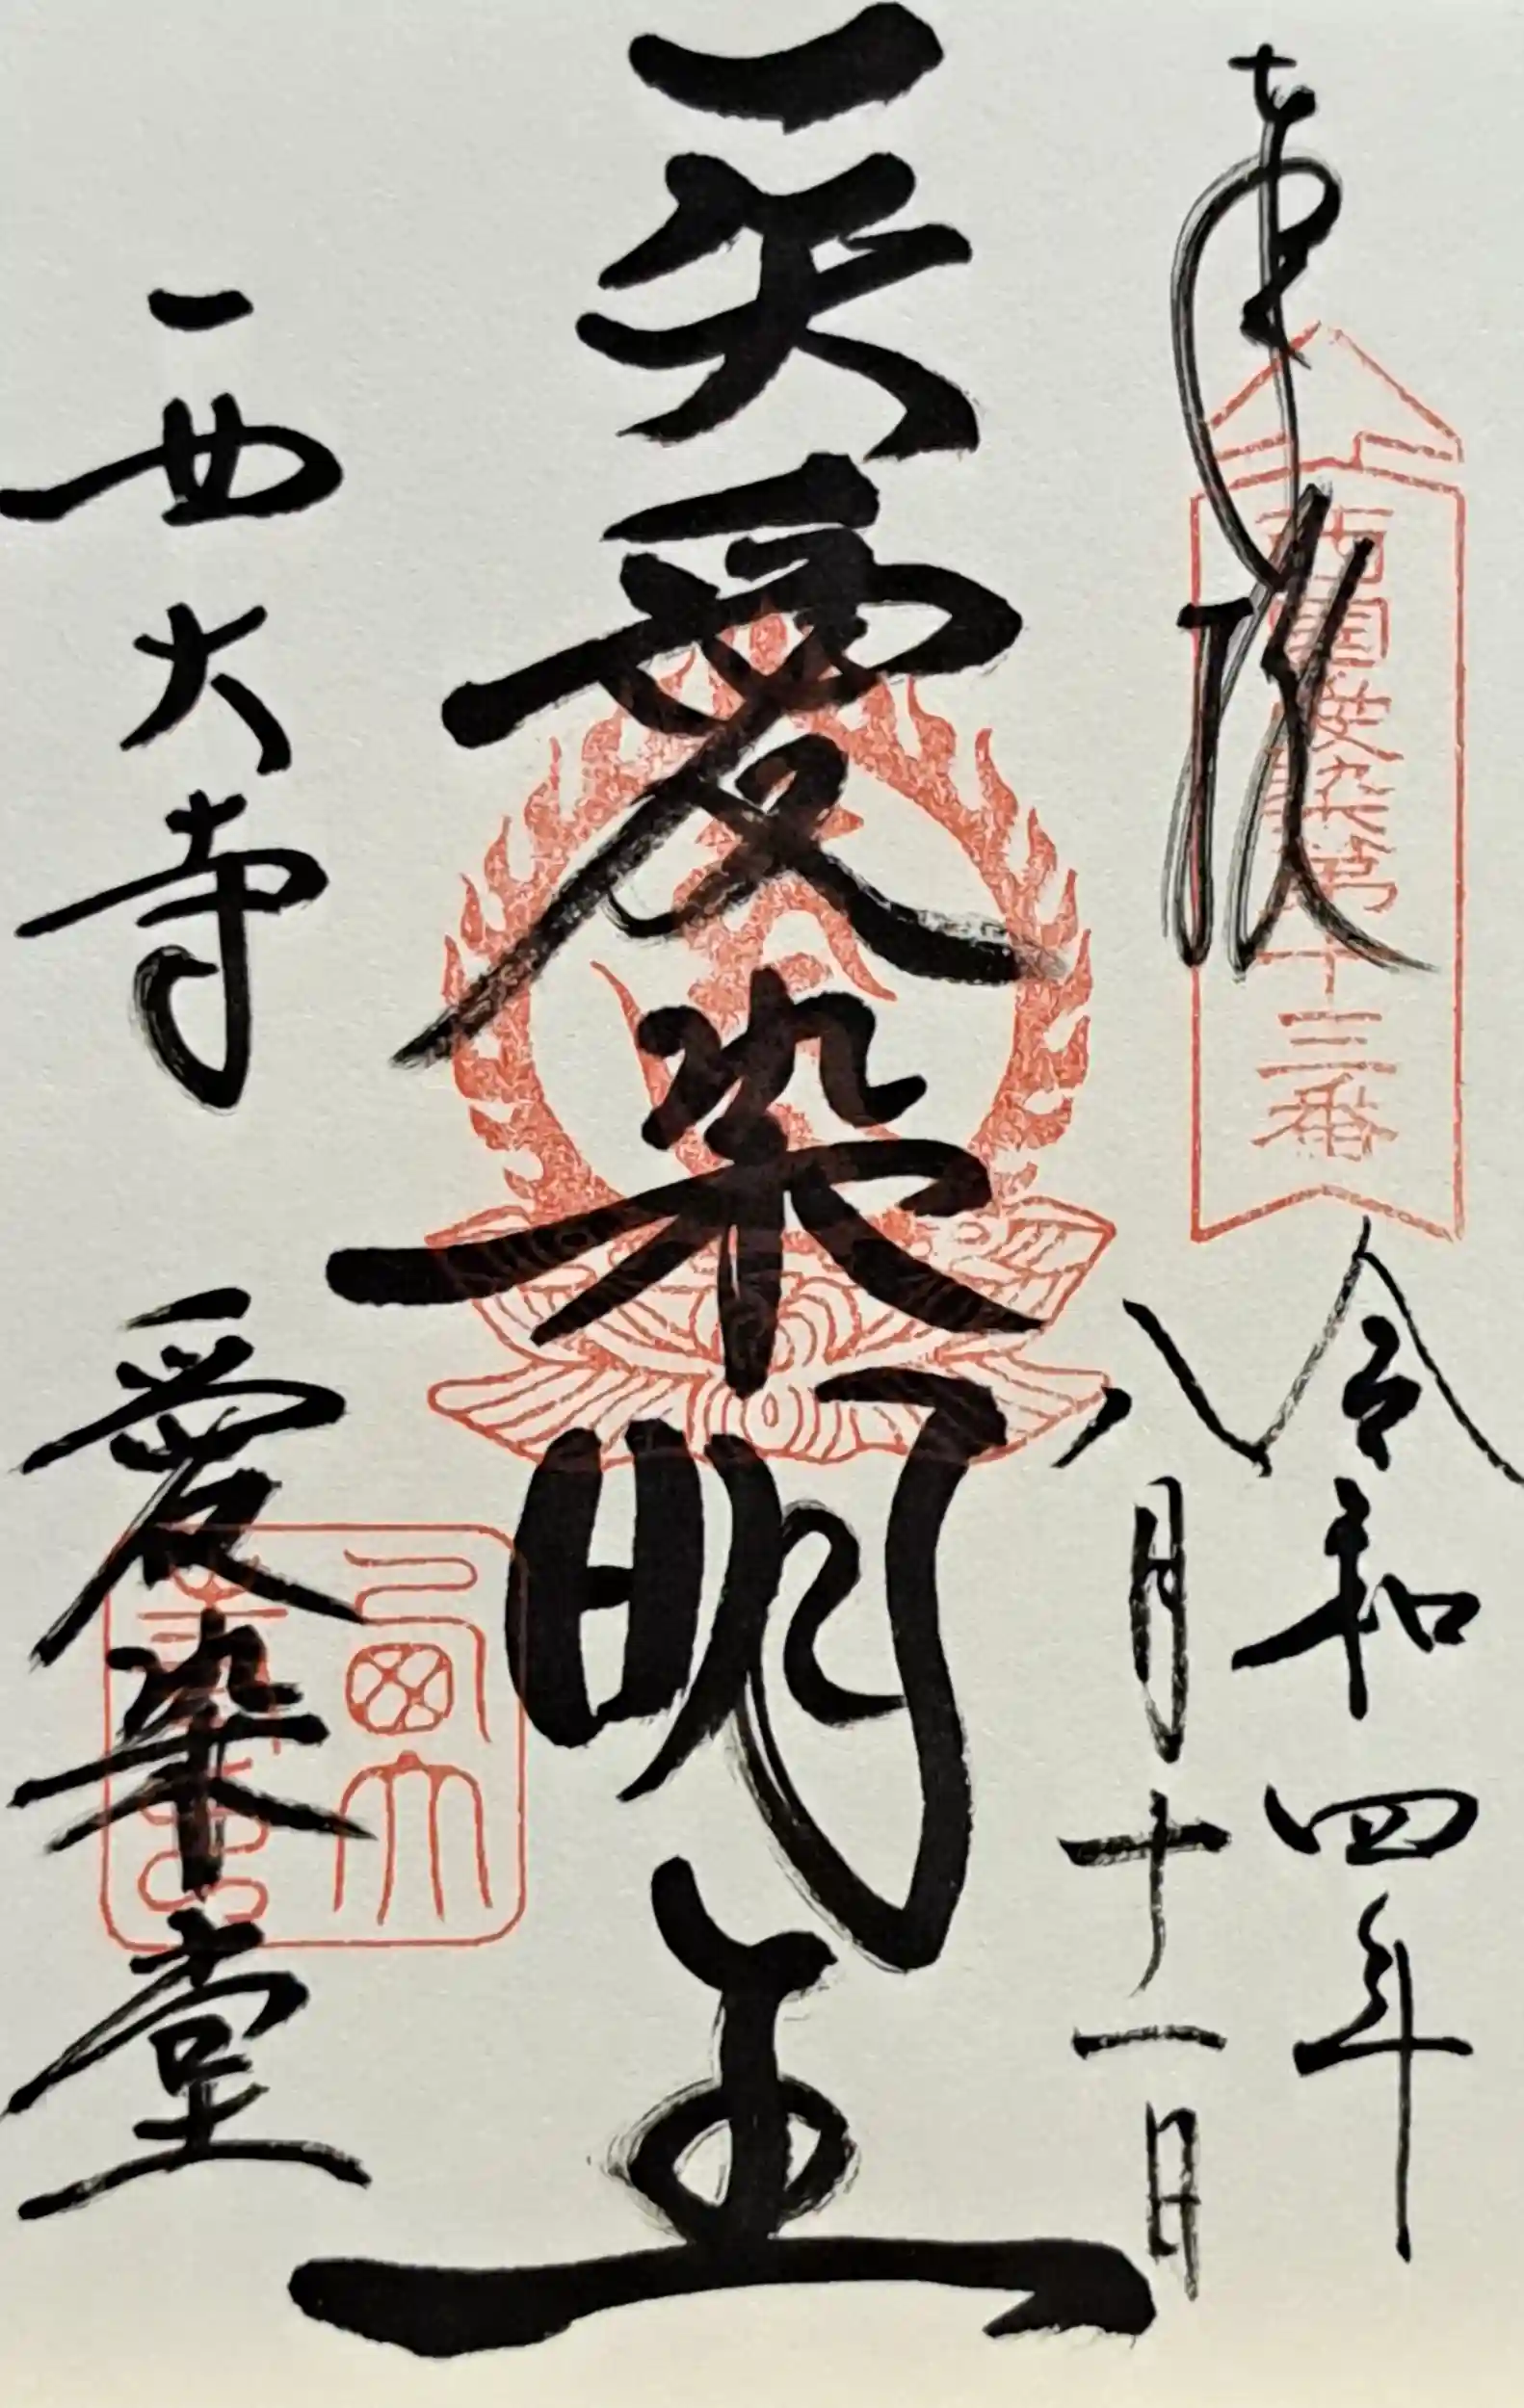 奉拝
西国愛染第十三番
令和四年
八月十一日
愛染明王
西大寺 愛染堂